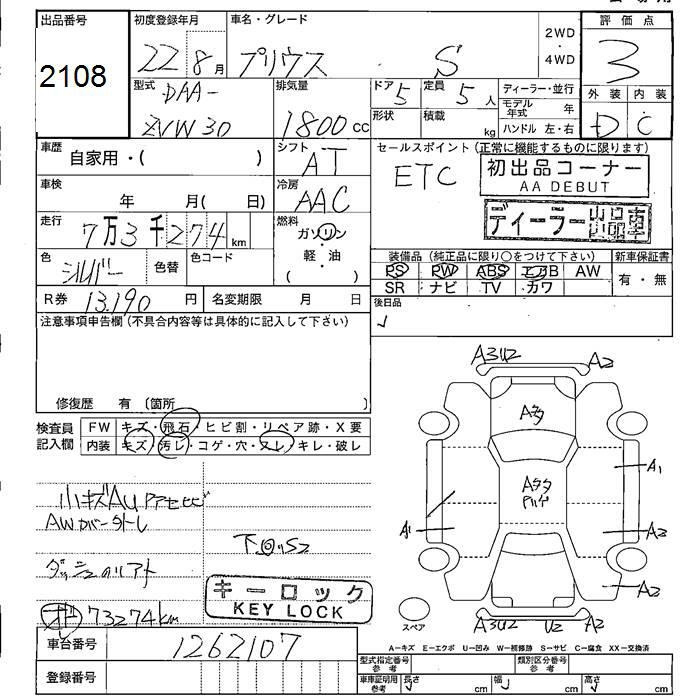 出品番号 初度登録年月 車名・グレード 2WD・4WD 評価点
2108 22 8月 プリウス S 3
型式 DAA- ZVW30 排気量 1800cc ドア 5 定員 5人 ディーラー・並行 外装 内装
形状 積載 kg モデル年式 年 D C
ハンドル 左・右
車歴 自家用・( ) シフト AT セールスポイント(正常に機能するものに限ります)
ETC 初出品コーナー
AA DEBUT
車検 年 月( 日) 冷房 AAC
ディーラー出品車
走行 7万3千274km 燃料 ガソリン・軽油
色 シルバー 色替 色コード 装備品(純正品に限り○をつけて下さい) 新車保証書
PS PW ABS エアB AW 有・無
SR ナビ TV カワ
R券 13,190円 名変期限 月 日 後日品
注意事項申告欄(不具合内容等は具体的に記入して下さい)
修復歴 有 (箇所 )
A3U2 A2
検査員記入欄 FW キズ・飛石・ヒビ割・リペア跡・X要
内装 キズ・汚レ・コゲ・穴・スレ・キレ・破レ
A1
A1 A2
A2
小キズAU
AWカバー
下回S2
キーロック
KEY LOCK
73274km
スペア A3U2 U2 A2
車台番号 1262107
A-キズ E-エクボ U-凹み W-補修跡 S-サビ C-腐食 XX-交換済
登録番号 型式指定番号 参考 類別区分番号 参考
車庫証明用 参考 長さ cm 幅 cm 高さ cm